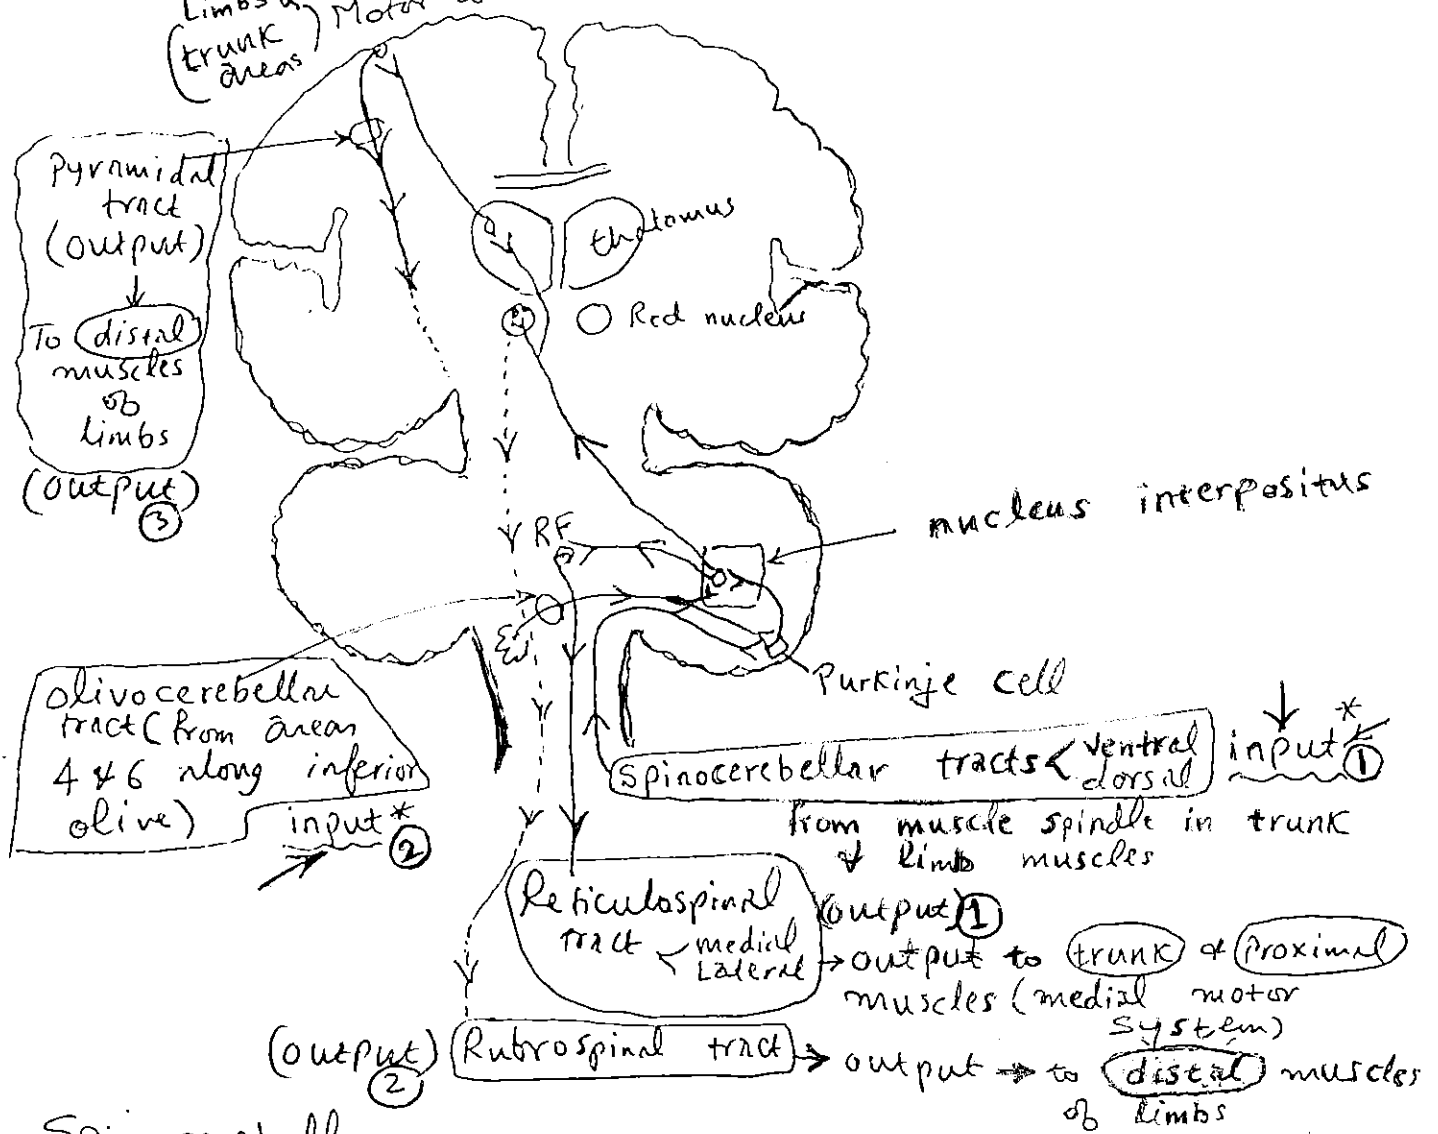 Limbs &
(trunk areas) Motor
Pyramidal
tract
(output)
To distal
muscles
of
limbs
(output)
3
thalamus
Red nucleus
RF
nucleus interpositus
Purkinje cell
olivocerebellar
tract (from areas
4 & 6 along inferior
olive)
input*
2
Spinocerebellar tracts < ventral
dorsal
input*
1
from muscle spindle in trunk
limb muscles
Reticulospinal
tract < medial
Lateral
(output) 1
output to trunk & Proximal
muscles (medial motor
system)
(output)
2
Rubrospinal tract
output to distal muscles
of limbs